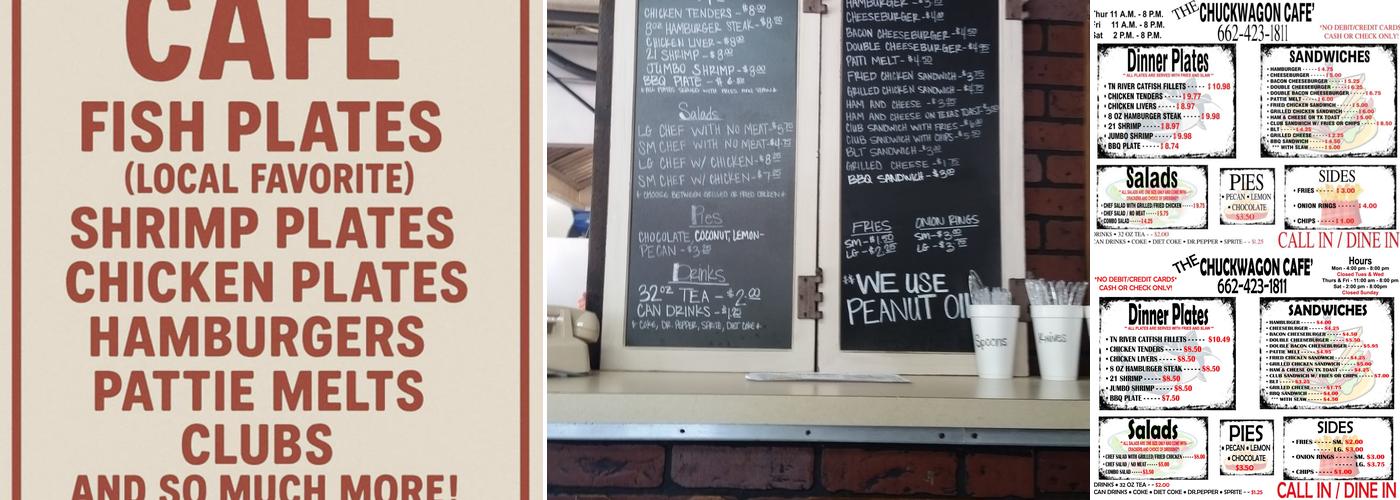 CAFE
FISH PLATES
(LOCAL FAVORITE)
SHRIMP PLATES
CHICKEN PLATES
HAMBURGERS
PATTIE MELTS
CLUBS
AND SO MUCH MORE!
CHICKEN TENDERS - $8.00
8oz HAMBURGER STEAK - $8.00
CHICKEN LIVER - $8.00
21 SHRIMP - $8.00
JUMBO SHRIMP - $8.00
BBQ PLATE - $
Salads
LG CHEF WITH NO MEAT - $5.75
SM CHEF WITH NO MEAT - $4.75
LG CHEF W/ CHICKEN - $8
SM CHEF W/ CHICKEN - $7
* CHOOSE BETWEEN GRILLED OR FRIED CHICKEN *
Pies
CHOCOLATE, COCONUT, LEMON -
PECAN - $3
Drinks
32oz TEA - $2.00
CAN DRINKS - $1.25
* COKE, DR. PEPPER, SPRITE, DIET COKE *
HAMBURGER - $3
CHEESEBURGER - $4.00
BACON CHEESEBURGER - $4
DOUBLE CHEESEBURGER - $4
PATI MELT - $4
FRIED CHICKEN SANDWICH - $3
GRILLED CHICKEN SANDWICH - $4
HAM AND CHEESE - $3
HAM AND CHEESE ON TEXAS TOAST -
CLUB SANDWICH WITH FRIES - $6
CLUB SANDWICH WITH CHIPS - $5
BLT SANDWICH - $3
GRILLED CHEESE - $1
BBQ SANDWICH - $3
FRIES
SM - $1
LG - $2
ONION RINGS
SM - $3
LG - $3
**WE USE
PEANUT OIL
Spoons
Knives
Thur 11 A.M. - 8 P.M.
Fri 11 A.M. - 8 P.M.
Sat 2 P.M. - 8 P.M.
THE CHUCKWAGON CAFE'
662-423-1811
*NO DEBIT/CREDIT CARDS
CASH OR CHECK ONLY!
Dinner Plates
* ALL PLATES ARE SERVED WITH FRIES AND SLAW *
• TN RIVER CATFISH FILLETS - - - - - $10.98
• CHICKEN TENDERS - - - - - $9.77
• CHICKEN LIVERS - - - - - $8.97
• 8 OZ HAMBURGER STEAK - - - - - $9.98
• 21 SHRIMP - - - - - $8.97
• JUMBO SHRIMP - - - - - $9.98
• BBQ PLATE - - - - - $8.74
SANDWICHES
• HAMBURGER - - - - - $4.75
• CHEESEBURGER - - - - - $5.00
• BACON CHEESEBURGER - - - - - $5.25
• DOUBLE CHEESEBURGER - - - - - $6.25
• DOUBLE BACON CHEESEBURGER - - - - - $6.75
• PATTIE MELT - - - - - $6.00
• FRIED CHICKEN SANDWICH - - - - - $5.00
• GRILLED CHICKEN SANDWICH - - - - - $6.00
• HAM & CHEESE ON TX TOAST - - - - - $5.00
• CLUB SANDWICH W/ FRIES OR CHIPS - - - - - $8.50
• BLT - - - - - $4.25
• GRILLED CHEESE - - - - - $2.25
• BBQ SANDWICH - - - - - $4.50
*** WITH SLAW - - - - - $5.00
Salads
* ALL SALADS ARE ONE SIZE ONLY AND COME WITH
CRACKERS AND CHOICE OF DRESSING*
• CHEF SALAD WITH GRILLED/FRIED CHICKEN - - - - - $9.75
• CHEF SALAD / NO MEAT - - - - - $5.75
• COMBO SALAD - - - - - $4.25
PIES
• PECAN • LEMON
• CHOCOLATE
$3.50
SIDES
• FRIES - - - - - $3.00
• ONION RINGS - - - - - $4.00
• CHIPS - - - - - $1.00
DRINKS • 32 OZ TEA - - $2.00
CAN DRINKS • COKE • DIET COKE • DR.PEPPER • SPRITE - - $1.25
CALL IN / DINE IN
*NO DEBIT/CREDIT CARDS*
CASH OR CHECK ONLY!
THE CHUCKWAGON CAFE'
662-423-1811
Hours
Mon - 4:00 pm - 8:00 pm
Closed Tues & Wed
Thurs & Fri - 11:00 am - 8:00 pm
Sat - 2:00 pm - 8:00pm
Closed Sunday
Dinner Plates
* ALL PLATES ARE SERVED WITH FRIES AND SLAW *
• TN RIVER CATFISH FILLETS - - - - - $10.49
• CHICKEN TENDERS - - - - - $8.50
• CHICKEN LIVERS - - - - - $8.50
• 8 OZ HAMBURGER STEAK - - - - - $8.50
• 21 SHRIMP - - - - - $8.50
• JUMBO SHRIMP - - - - - $8.50
• BBQ PLATE - - - - - $7.50
SANDWICHES
• HAMBURGER - - - - - $4.00
• CHEESEBURGER - - - - - $4.25
• BACON CHEESEBURGER - - - - - $4.50
• DOUBLE CHEESEBURGER - - - - - $5.50
• DOUBLE BACON CHEESEBURGER - - - - - $5.95
• PATTIE MELT - - - - - $4.95
• FRIED CHICKEN SANDWICH - - - - - $4.25
• GRILLED CHICKEN SANDWICH - - - - - $5.00
• HAM & CHEESE ON TX TOAST - - - - - $4.25
• CLUB SANDWICH W/ FRIES OR CHIPS - - - - - $7.00
• BLT - - - - - $3.25
• GRILLED CHEESE - - - - - $1.75
• BBQ SANDWICH - - - - - $4.00
*** WITH SLAW - - - - - $4.50
Salads
* ALL SALADS ARE ONE SIZE ONLY AND COME WITH
CRACKERS AND CHOICE OF DRESSING*
• CHEF SALAD WITH GRILLED/FRIED CHICKEN - - - - -
• CHEF SALAD / NO MEAT - - - - - $5.00
• COMBO SALAD - - - - - $3.50
PIES
• PECAN • LEMON
• CHOCOLATE
$3.50
SIDES
• FRIES - - - - - SM. $2.00
- - - - - LG. $3.00
• ONION RINGS - - - - - SM. $3.00
- - - - - LG. $3.75
• CHIPS - - - - - $1.00
DRINKS • 32 OZ TEA - - $2.00
CAN DRINKS • COKE • DIET COKE • DR.PEPPER • SPRITE - - $1.25
CALL IN / DINE IN